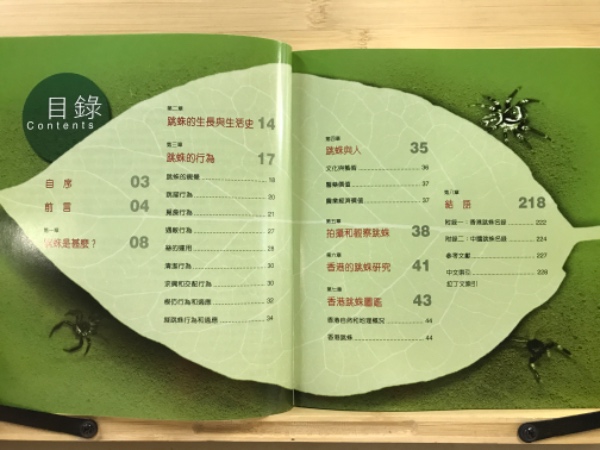 目錄
Contents
自序 03
前言 04
第一章
跳蛛是甚麼? 08
第二章
跳蛛的生長與生活史 14
第三章
跳蛛的行為 17
跳蛛的視覺 18
跳躍行為 20
捕食行為 21
遇敵行為 27
絲的運用 28
清潔行為 30
求偶和交配行為 30
模仿行為和適應 32
擬跳蛛行為和適應 34
第四章
跳蛛與人 35
文化與藝術 36
醫藥價值 37
農業經濟價值 37
第五章
拍攝和觀察跳蛛 38
第六章
香港的跳蛛研究 41
第七章
香港跳蛛圖鑑 43
香港自然和地理概況 44
香港跳蛛 44
第八章
結語 218
附錄一:香港跳蛛名錄 222
附錄二:中國跳蛛名錄 224
參考文獻 227
中文索引 228
拉丁文索引